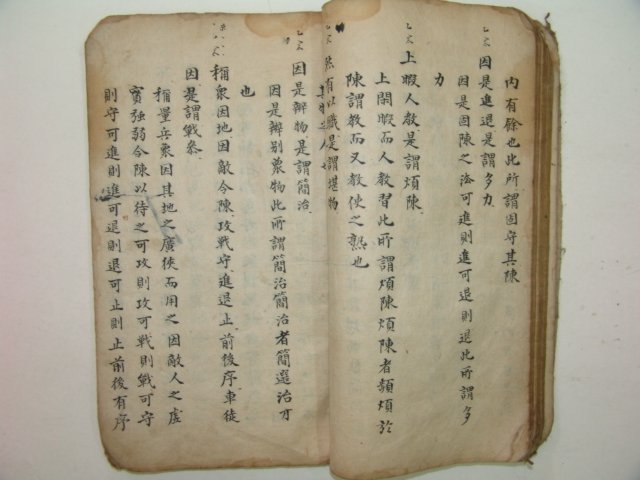 内有餘也此所謂固守其陳
因是進退是謂多力
因是固陳之法可進則進可退則退此所謂多
力
上暇人教是謂煩陳
上閑暇而人教習此所謂煩陳煩陳者頻煩於
陳謂教而又教使之熟也
然有以職是謂堪物
因是辨物是謂簡治
因是辨別衆物此所謂簡治簡治者簡選治才
也
稱衆因地因敵令陳攻戰守進退止前後序車徒
因是謂戰參
稱量兵衆因其地之廣俠而用之因敵人之虛
實强弱令陳以待之可攻則攻可戰則戰可守
則守可進則進可退則退可止則止前後有序